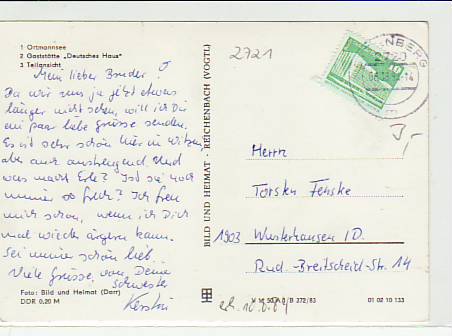 1 Ortmannsee
2 Gaststätte „Deutsches Haus"
3 Teilansicht
Mein lieber Bruder!
Da wir uns ja jetzt etwas
länger nicht sehen, will ich Dir
ein paar liebe Grüsse senden.
Es ist sehr schön hier in
aber auch anstrengend. Und
was macht ? Ist sie noch
immer so frech? Ich freu
mich schon, wenn ich Dich
mal wieder ärgern kann.
Sei immer schön lieb.
Viele Grüsse von Deine
Schwester
Kerstin
Foto: Bild und Heimat (Darr)
DDR 0,20 M
BILD UND HEIMAT · REICHENBACH (VOGTL)
2721
ENBERG
2720
Herrn
Torsten Fenske
1903 Wusterhausen/D.
Rud.-Breitscheid-Str. 14
V 11 50 A 1/B 372/83
01 02 10 133